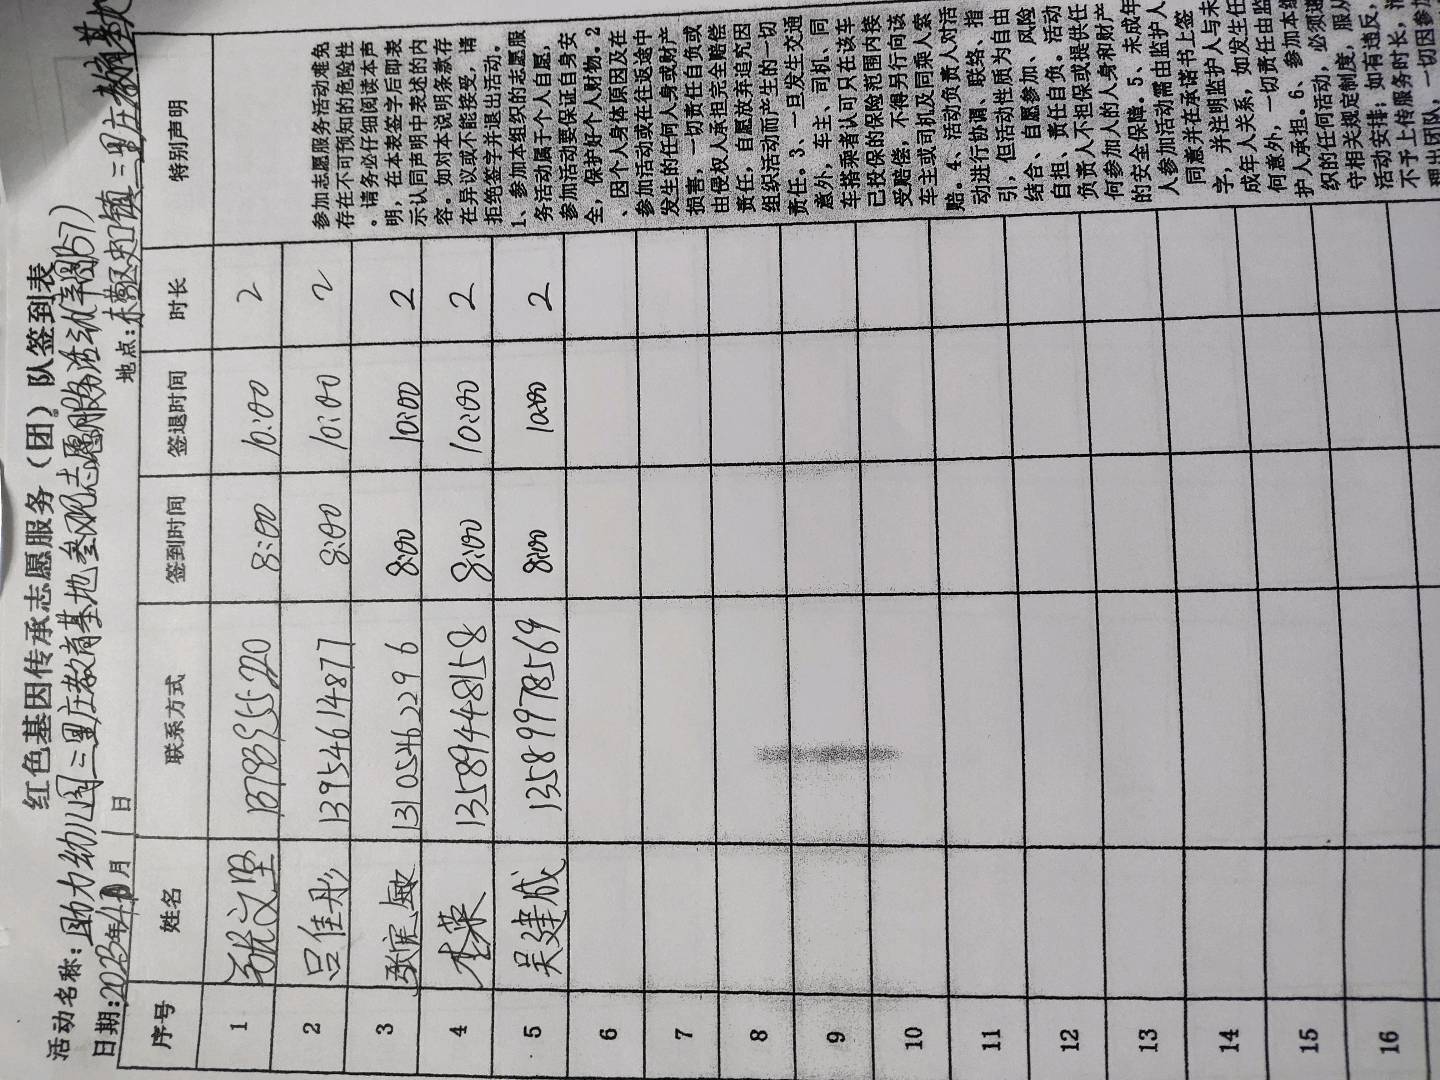 红色基因传承志愿服务（团）队签到表
活动名称：助力幼儿园三里庄教育基地参观志愿服务活动（第157）
日期：2023年 月1日 地点：东营区史口镇三里庄教育基地
序号 姓名 联系方式 签到时间 签退时间 时长 特别声明
1 文坚 8:00 10:00 2
2 吕佳彤 13954614877 8:00 10:00 2
3 敏 13105462296 8:00 10:00 2
4 李荣 13589448158 8:00 10:00 2
5 吴建成 13589978569 8:00 10:00 2
6
7
8
9
10
11
12
13
14
15
16
参加志愿服务活动难免
存在不可预知的危险性
。请务必仔细阅读本声
明，在本表签字后即表
示认同声明中表述的内
容。如对本说明条款存
在异议或不能接受，请
拒绝签字并退出活动。
1、参加本组织的志愿服
务活动属于个人自愿，
参加活动要保证自身安
全，保护好个人财物。2
、因个人身体原因及在
参加活动或在往返途中
发生的任何人身或财产
损害，一切责任自负或
由侵权人承担完全赔偿
责任，自愿放弃追究因
组织活动而产生的一切
责任。3、一旦发生交通
意外，车主、司机、同
车搭乘者认可只在该车
已投保的保险范围内接
受赔偿，不得另行向该
车主或司机及同乘人索
赔。4、活动负责人对活
动进行协调、联络、指
引，但活动性质为自由
结合、自愿参加、风险
自担、责任自负。活动
负责人不担保或提供任
何参加人的人身和财产
的安全保障。5、未成年
人参加活动需由监护人
同意并在承诺书上签
字，并注明监护人与未
成年人关系，如发生任
何意外，一切责任由监
护人承担。6、参加本组
织的任何活动，必须遵
守相关规定制度，服从
活动安排；如有违反，
不予上传服务时长，清
理出团队，一切因参加